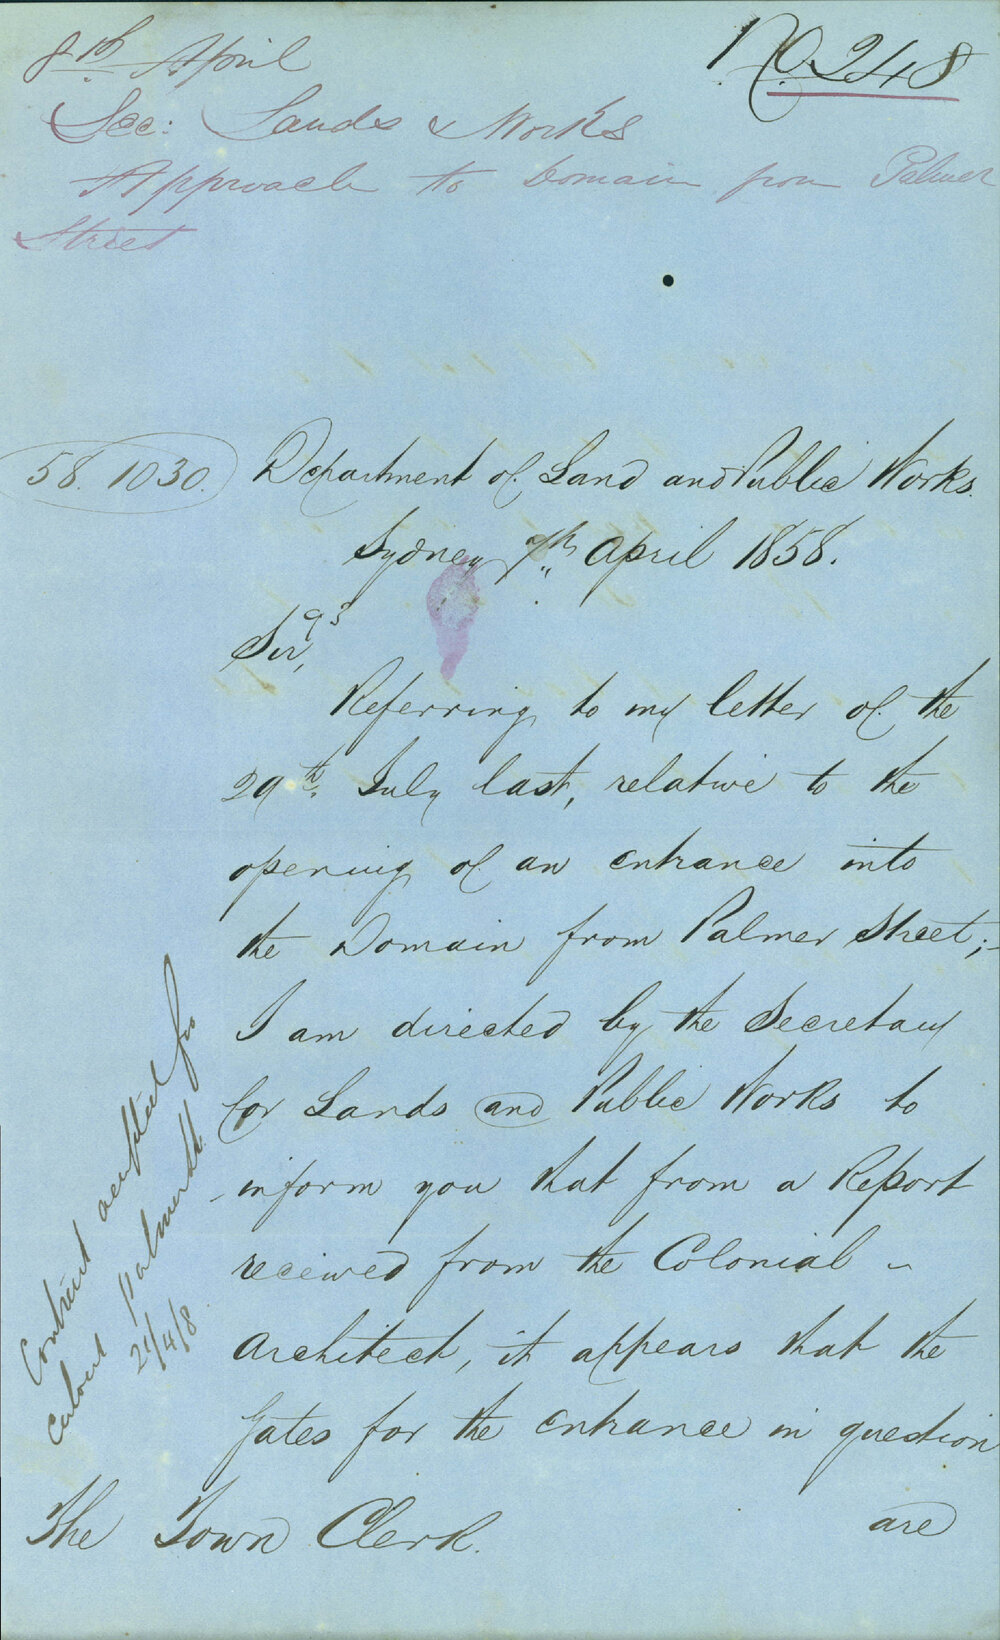 8th April
No. 248
Sec: Lands & Works
Approach to Domain from Palmer
Street
58. 1030. Department of Land and Public Works.
Sydney 7th April 1858.
93
Sir,
Referring to my letter of the
29th July last, relative to the
opening of an entrance into
the Domain from Palmer Street;-
I am directed by the Secretary
for Lands and Public Works to
inform you that from a Report
received from the Colonial
Architect, it appears that the
Gates for the entrance in question
are
The Town Clerk.
Contract accepted for
21/4/8